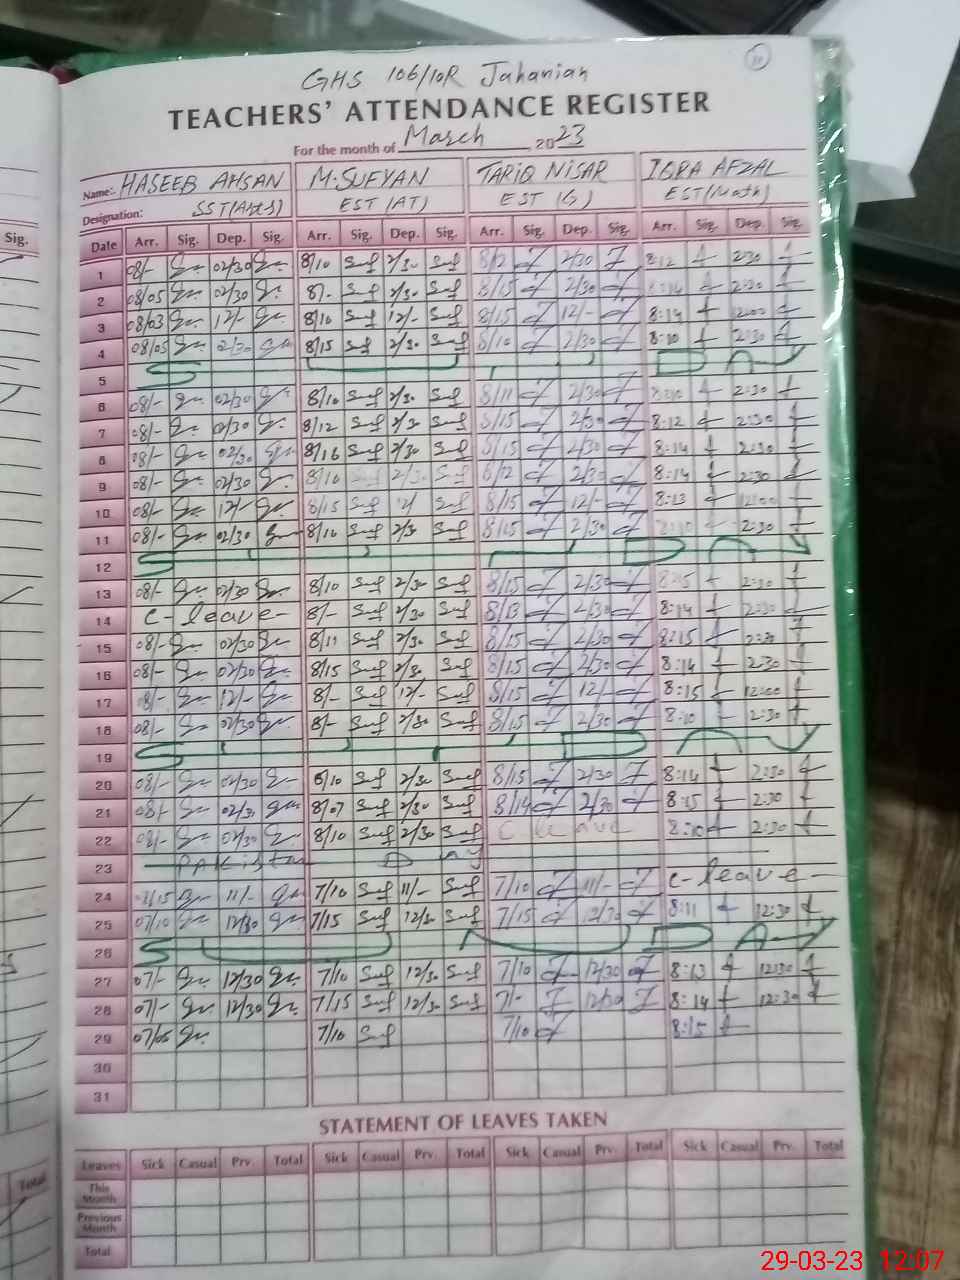 11
GHS 106/10R Jahanian
TEACHERS' ATTENDANCE REGISTER
For the month of March, 2023
Name:- HASEEB AHSAN M.SUFYAN TARIQ NISAR IQRA AFZAL
Designation: SST(Arts) EST (AT) EST (G) EST(Math)
Sig.
Date Arr. Sig. Dep. Sig. Arr. Sig. Dep. Sig. Arr. Sig. Dep. Sig. Arr. Sig. Dep. Sig.
1 08/- 02/30 8/10 Suf 2/30 Suf 8/12 2/30 8:12 2:30
2 08/05 02/30 8/- Suf 2/30 Suf 8/15 2/30 8:14 2:30
3 08/03 12/- 8/10 Suf 12/- Suf 8/15 12/- 8:14 12:00
4 08/05 02/30 8/15 Suf 2/30 Suf 8/10 2/30 8:10 2:30
5 S U N D A Y
6 08/- 02/30 8/10 Suf 2/30 Suf 8/11 2/30 8:10 2:30
7 08/- 02/30 8/12 Suf 2/30 Suf 8/15 2/30 8:12 2:30
8 08/- 02/30 8/16 Suf 2/30 Suf 8/15 2/30 8:14 2:30
9 08/- 02/30 8/10 Suf 2/30 Suf 8/12 2/30 8:14 2:30
10 08/- 12/- 8/15 Suf 12/ Suf 8/15 12/- 8:13 12:00
11 08/- 02/30 8/10 Suf 2/30 Suf 8/15 2/30 8:10 2:30
12 S U N D A Y
13 08/- 02/30 8/10 Suf 2/30 Suf 8/15 2/30 8:15 2:30
14 C-leave- 8/- Suf 2/30 Suf 8/13 2/30 8:14 2:30
15 08/- 02/30 8/11 Suf 2/30 Suf 8/15 2/30 8:15 2:30
16 08/- 02/30 8/15 Suf 2/30 Suf 8/15 2/30 8:14 2:30
17 08/- 12/- 8/- Suf 12/- Suf 8/15 12/- 8:15 12:00
18 08/- 02/30 8/- Suf 2/30 Suf 8/15 2/30 8:10 2:30
19 S U N D A Y
20 08/- 02/30 8/10 Suf 2/30 Suf 8/15 2/30 8:14 2:30
21 08/- 02/30 8/07 Suf 2/30 Suf 8/14 2/30 8:15 2:30
22 08/- 02/30 8/10 Suf 2/30 Suf C leave 8:10 2:30
23 PAKistan Day
24 07/15 11/- 7/10 Suf 11/- Suf 7/10 11/- C-leave-
25 07/10 12/30 7/15 Suf 12/30 Suf 7/15 12/30 8:11 12:30
26 S U N D A Y
27 07/- 12/30 7/10 Suf 12/30 Suf 7/10 12/30 8:13 12:30
28 07/- 12/30 7/15 Suf 12/30 Suf 7/- 12/30 8:14 12:30
29 07/05 7/10 Suf 7/10 8:15
30
31
STATEMENT OF LEAVES TAKEN
Leaves Sick Casual Prv. Total Sick Casual Prv. Total Sick Casual Prv. Total Sick Casual Prv. Total
This Month
Total
Previous Month
Total
29-03-23 12:07